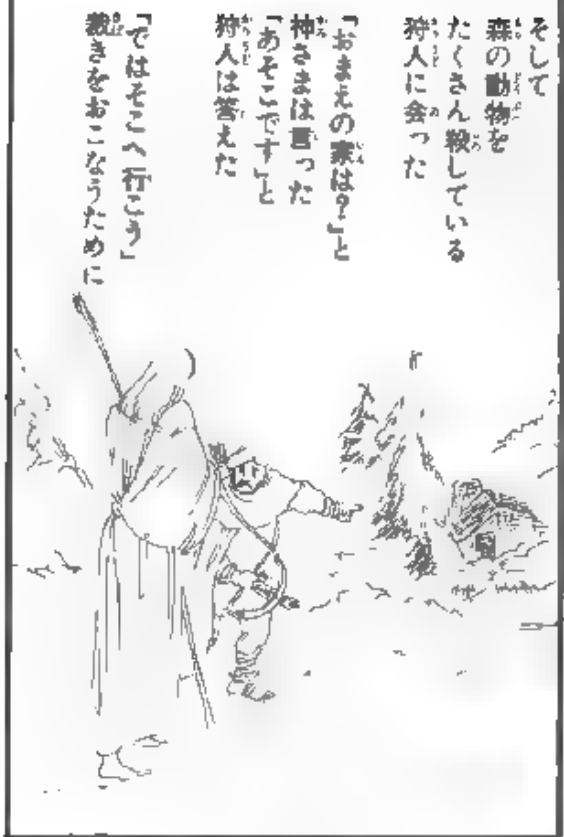 そして
森の動物を
たくさん殺している
狩人に会った
「おまえの家は?」と
神さまは言った
「あそこです」と
狩人は答えた
「ではそこへ行こう」
裁きをおこなうために